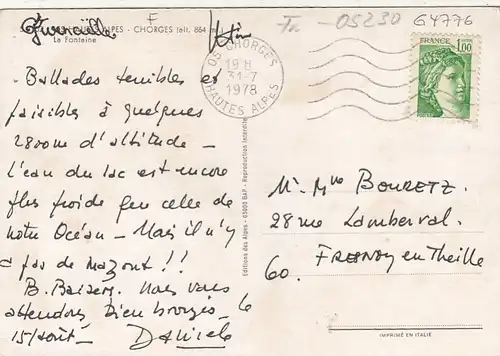 F
Tr -05230 G4776
ALPES - CHORGES (alt. 864 m.)
La Fontaine
05 CHORGES
19 H
31-7
1978
HAUTES ALPES
FRANCE
1,00
. Ballades tenibles et
paisibles à quelques
2800m d'altitude -
L'eau du lac est encore
plus froide que celle de
notre Océan - Mais il n'y
a pas de mazout !!
B. Baisers. Nous vous
attendons bien bronzés - le
15/août - Daniele
Editions des Alpes - 05000 GAP - Reproduction interdite
M. Mme BOURETZ
28 rue Lamberval.
FRESNOY en Thelle
60.
IMPRIMÉ EN ITALIE